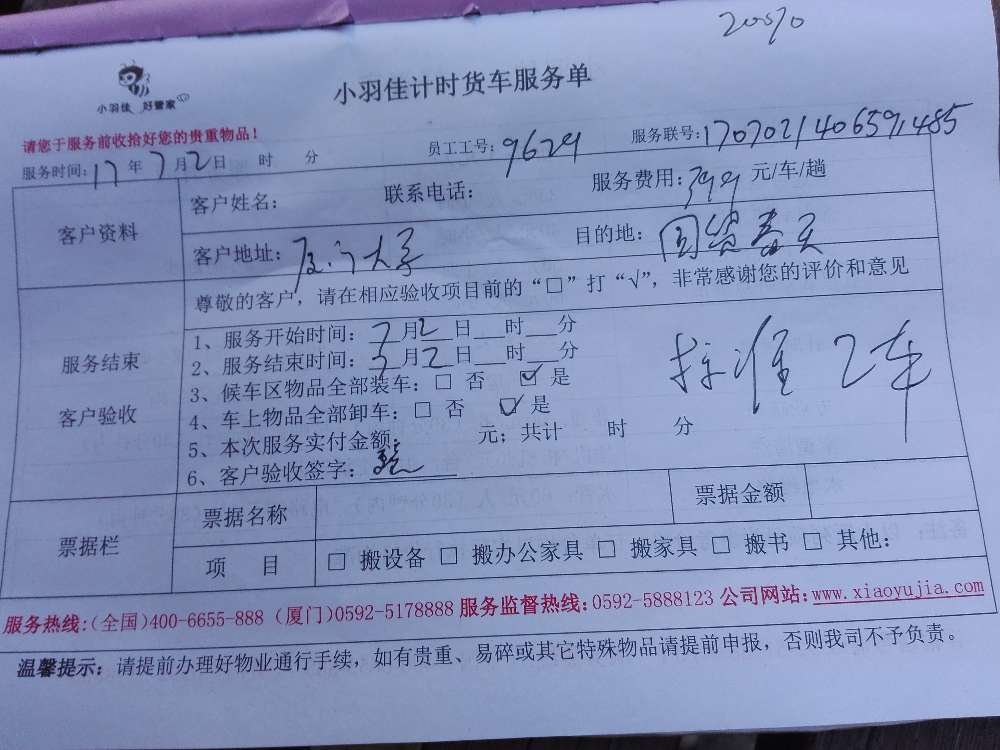 20070
小羽佳 好管家
小羽佳计时货车服务单
请您于服务前收拾好您的贵重物品！
服务时间：17年7月2日 时 分 员工工号：9629 服务联号：170702140659485
客户资料
客户姓名： 联系电话： 服务费用：399元/车/趟
客户地址：厦门大学 目的地：国贸春天
服务结束
客户验收
尊敬的客户，请在相应验收项目前的“□”打“√”，非常感谢您的评价和意见
1、服务开始时间：7月2日 时 分
2、服务结束时间：7月2日 时 分
3、候车区物品全部装车：□ 否 ☑ 是
4、车上物品全部卸车：□ 否 ☑ 是
5、本次服务实付金额： 元；共计 时 分
6、客户验收签字：
标准2车
票据栏
票据名称 票据金额
项 目 □ 搬设备 □ 搬办公家具 □ 搬家具 □ 搬书 □ 其他：
服务热线：(全国)400-6655-888 (厦门)0592-5178888 服务监督热线：0592-5888123 公司网站：www.xiaoyujia.com
温馨提示：请提前办理好物业通行手续，如有贵重、易碎或其它特殊物品请提前申报，否则我司不予负责。